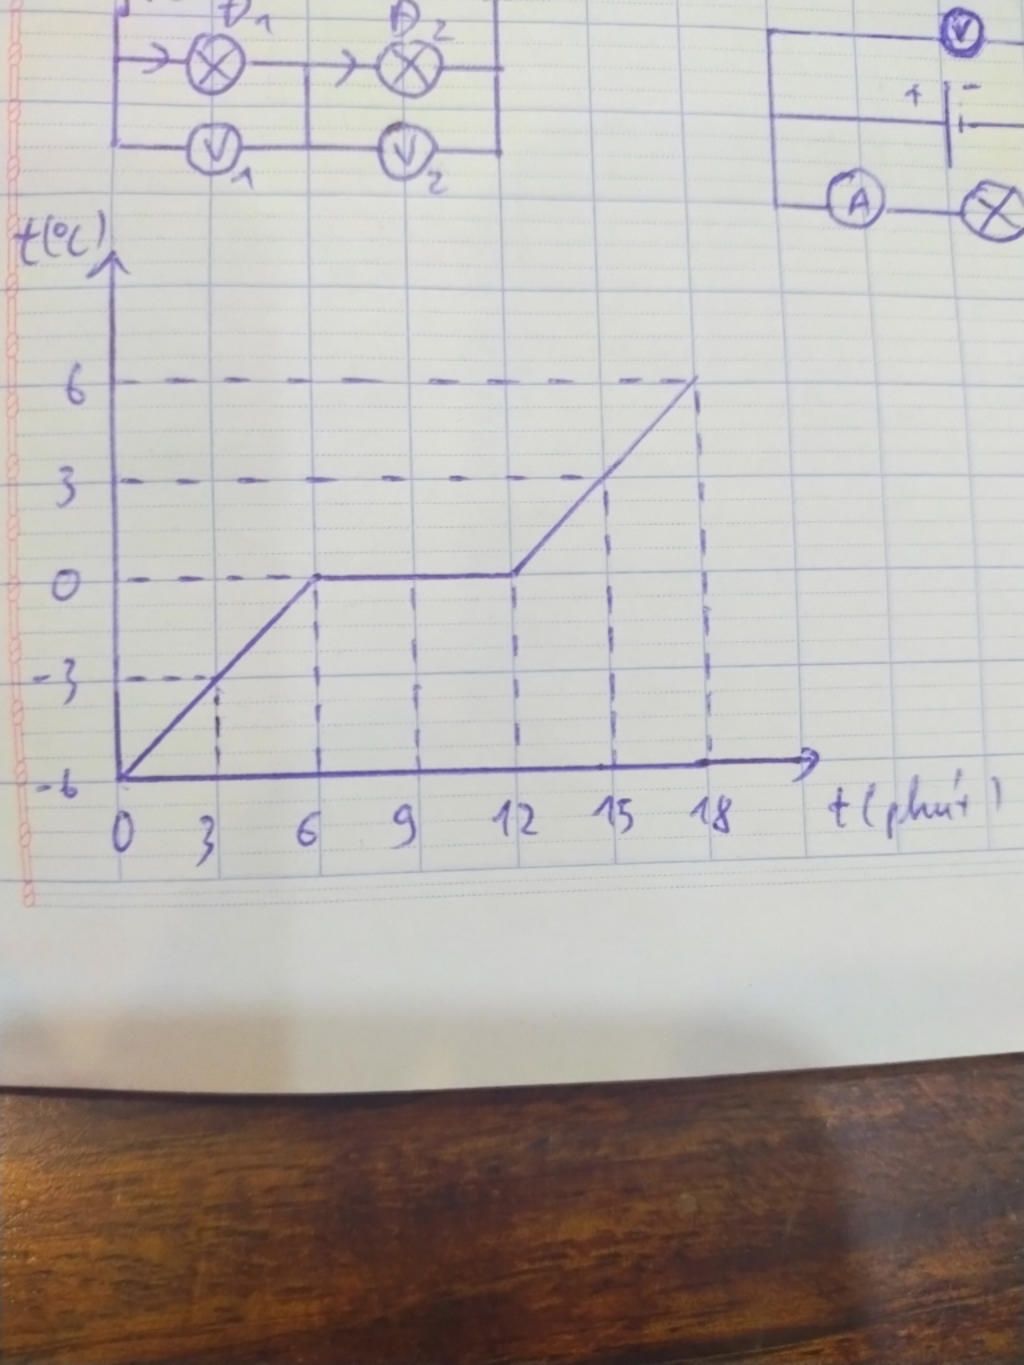 Đ1 Đ2
V
+ -
V1 V2
A
t(°C)
6
3
0
-3
-6
0 3 6 9 12 15 18 t(phút)